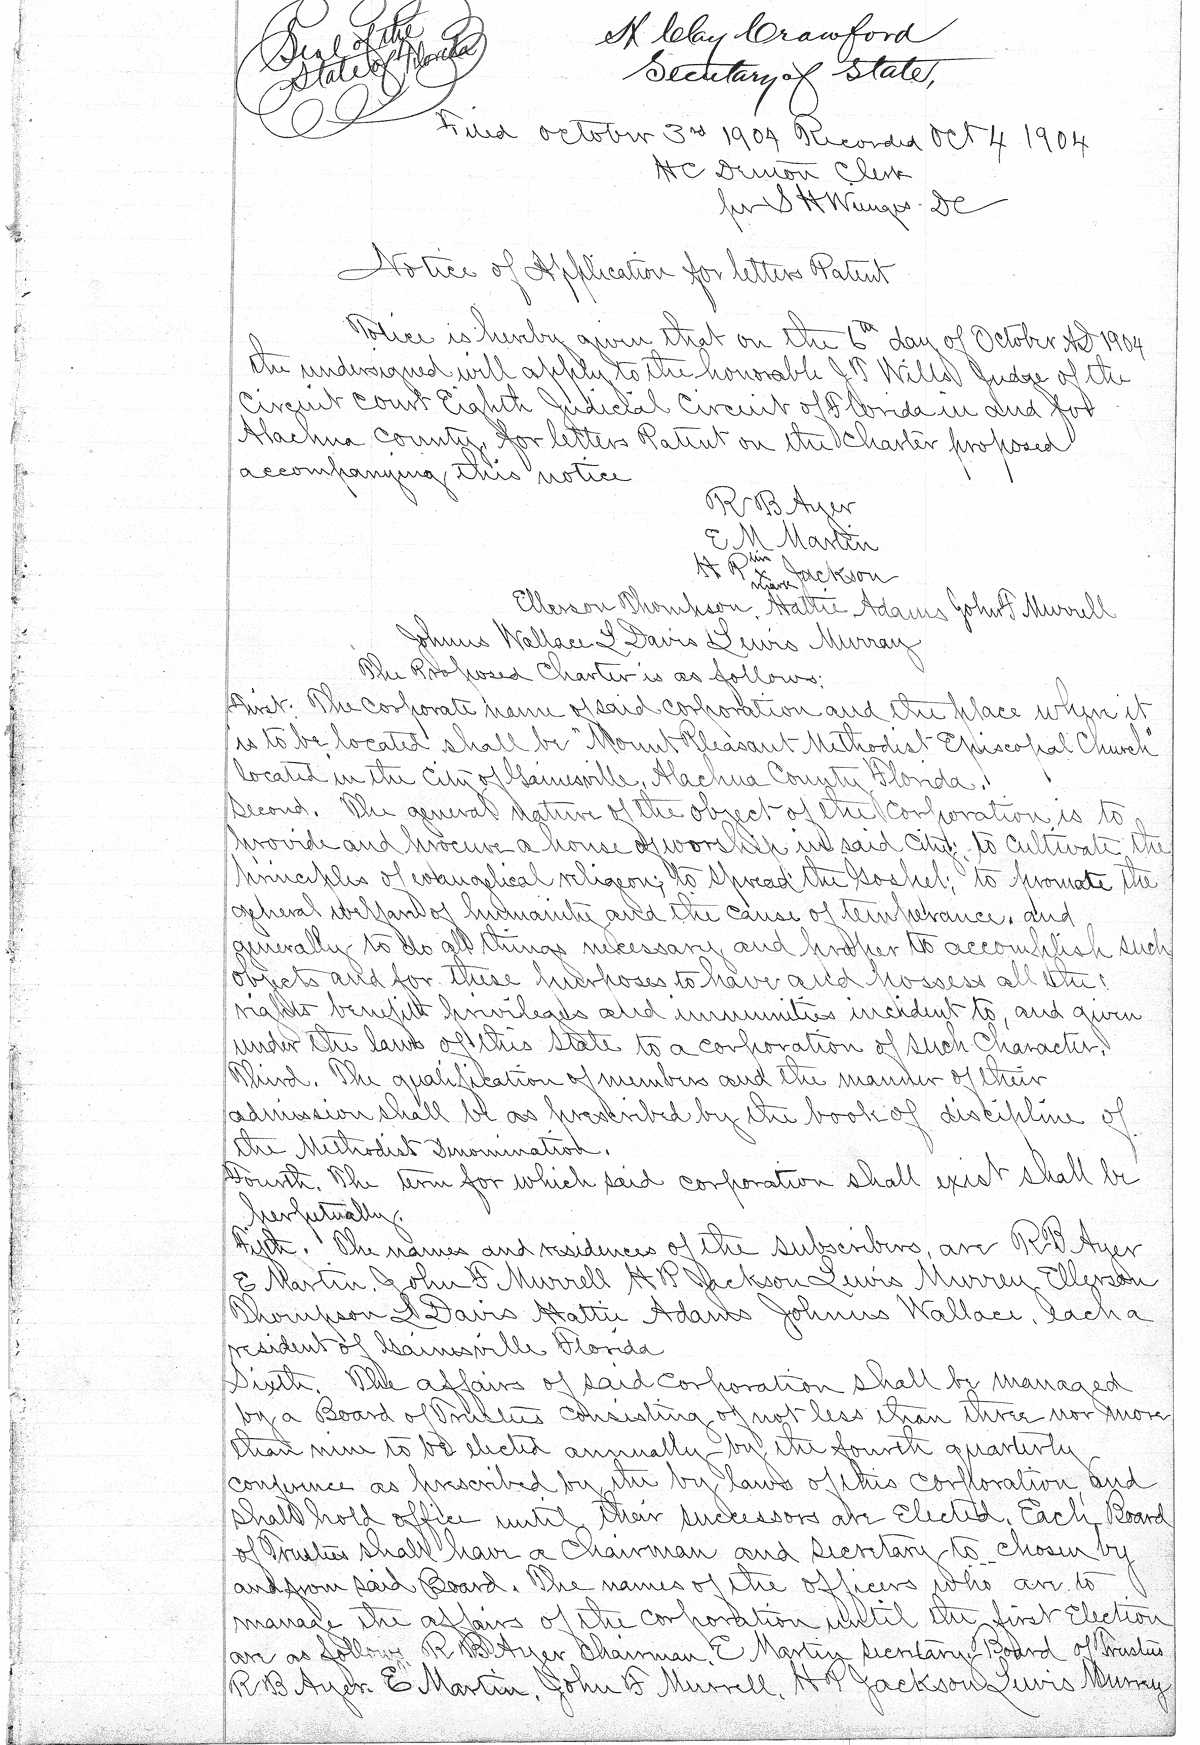 Seal of the
State of Florida
H Clay Crawford
Secretary of State,
Filed October 3rd 1904 Recorded Oct 4 1904
H C Denton Clerk
per S H Wienges DC
Notice of Application for letters Patent
Notice is hereby given that on the 6th day of October AD 1904
the undersigned will apply to the honorable J T Wills Judge of the
Circuit Court Eighth Judicial Circuit of Florida in and for
Alachua County, for letters Patent on the Charter proposed
accompanying this notice
R B Ayer
E M Martin
H P his x mark Jackson
Ellerson Thompson, Hattie Adams John F Murrell
Johnus Wallace L Davis Lewis Murray
The Proposed Charter is as follows:
First: The corporate name of said corporation and the place where it
is to be located shall be "Mount Pleasant Methodist Episcopal Church"
located in the City of Gainesville, Alachua County Florida.
Second. The general nature of the object of the Corporation is to
provide and procure a house of worship in said City; to cultivate the
principles of evangelical religeon; to spread the Gospel; to promate the
general welfare of humanity and the cause of temperance. and
generally to do all things necessary and proper to accomplish such
objects and for these purposes to have and possess all the
rights benefits privileges and immunities incident to, and given
under the laws of this State to a corporation of such Character.
Third. The qualification of members and the manner of their
admission shall be as prescribed by the book of discipline of
the Methodist Denomination.
Fourth. The term for which said corporation shall exist shall be
perpetually.
Fifth. The names and residences of the subscribers, are R B Ayer
E Martin, John F Murrell H P Jackson Lewis Murrey Ellerson
Thompson L Davis Hattie Adams Johnus Wallace, each a
resident of Gainesville Florida
Sixth. The affairs of said Corporation shall be managed
by a Board of Trustees consisting of not less than three nor more
than nine to be elected annually by the fourth quarterly
conference as prescribed by the by laws of this Corporation and
shall hold office until their successors are Elected. Each Board
of Trustees shall have a Chairman and Secretary to chosen by
and from said Board. The names of the officers who are to
manage the affairs of the Corporation until the first Election
are as follows R B Ayer Chairman. E Martin Secretary. Board of Trustees
R B Ayer. E Martin, John F Murrell, H P Jackson Lewis Murray